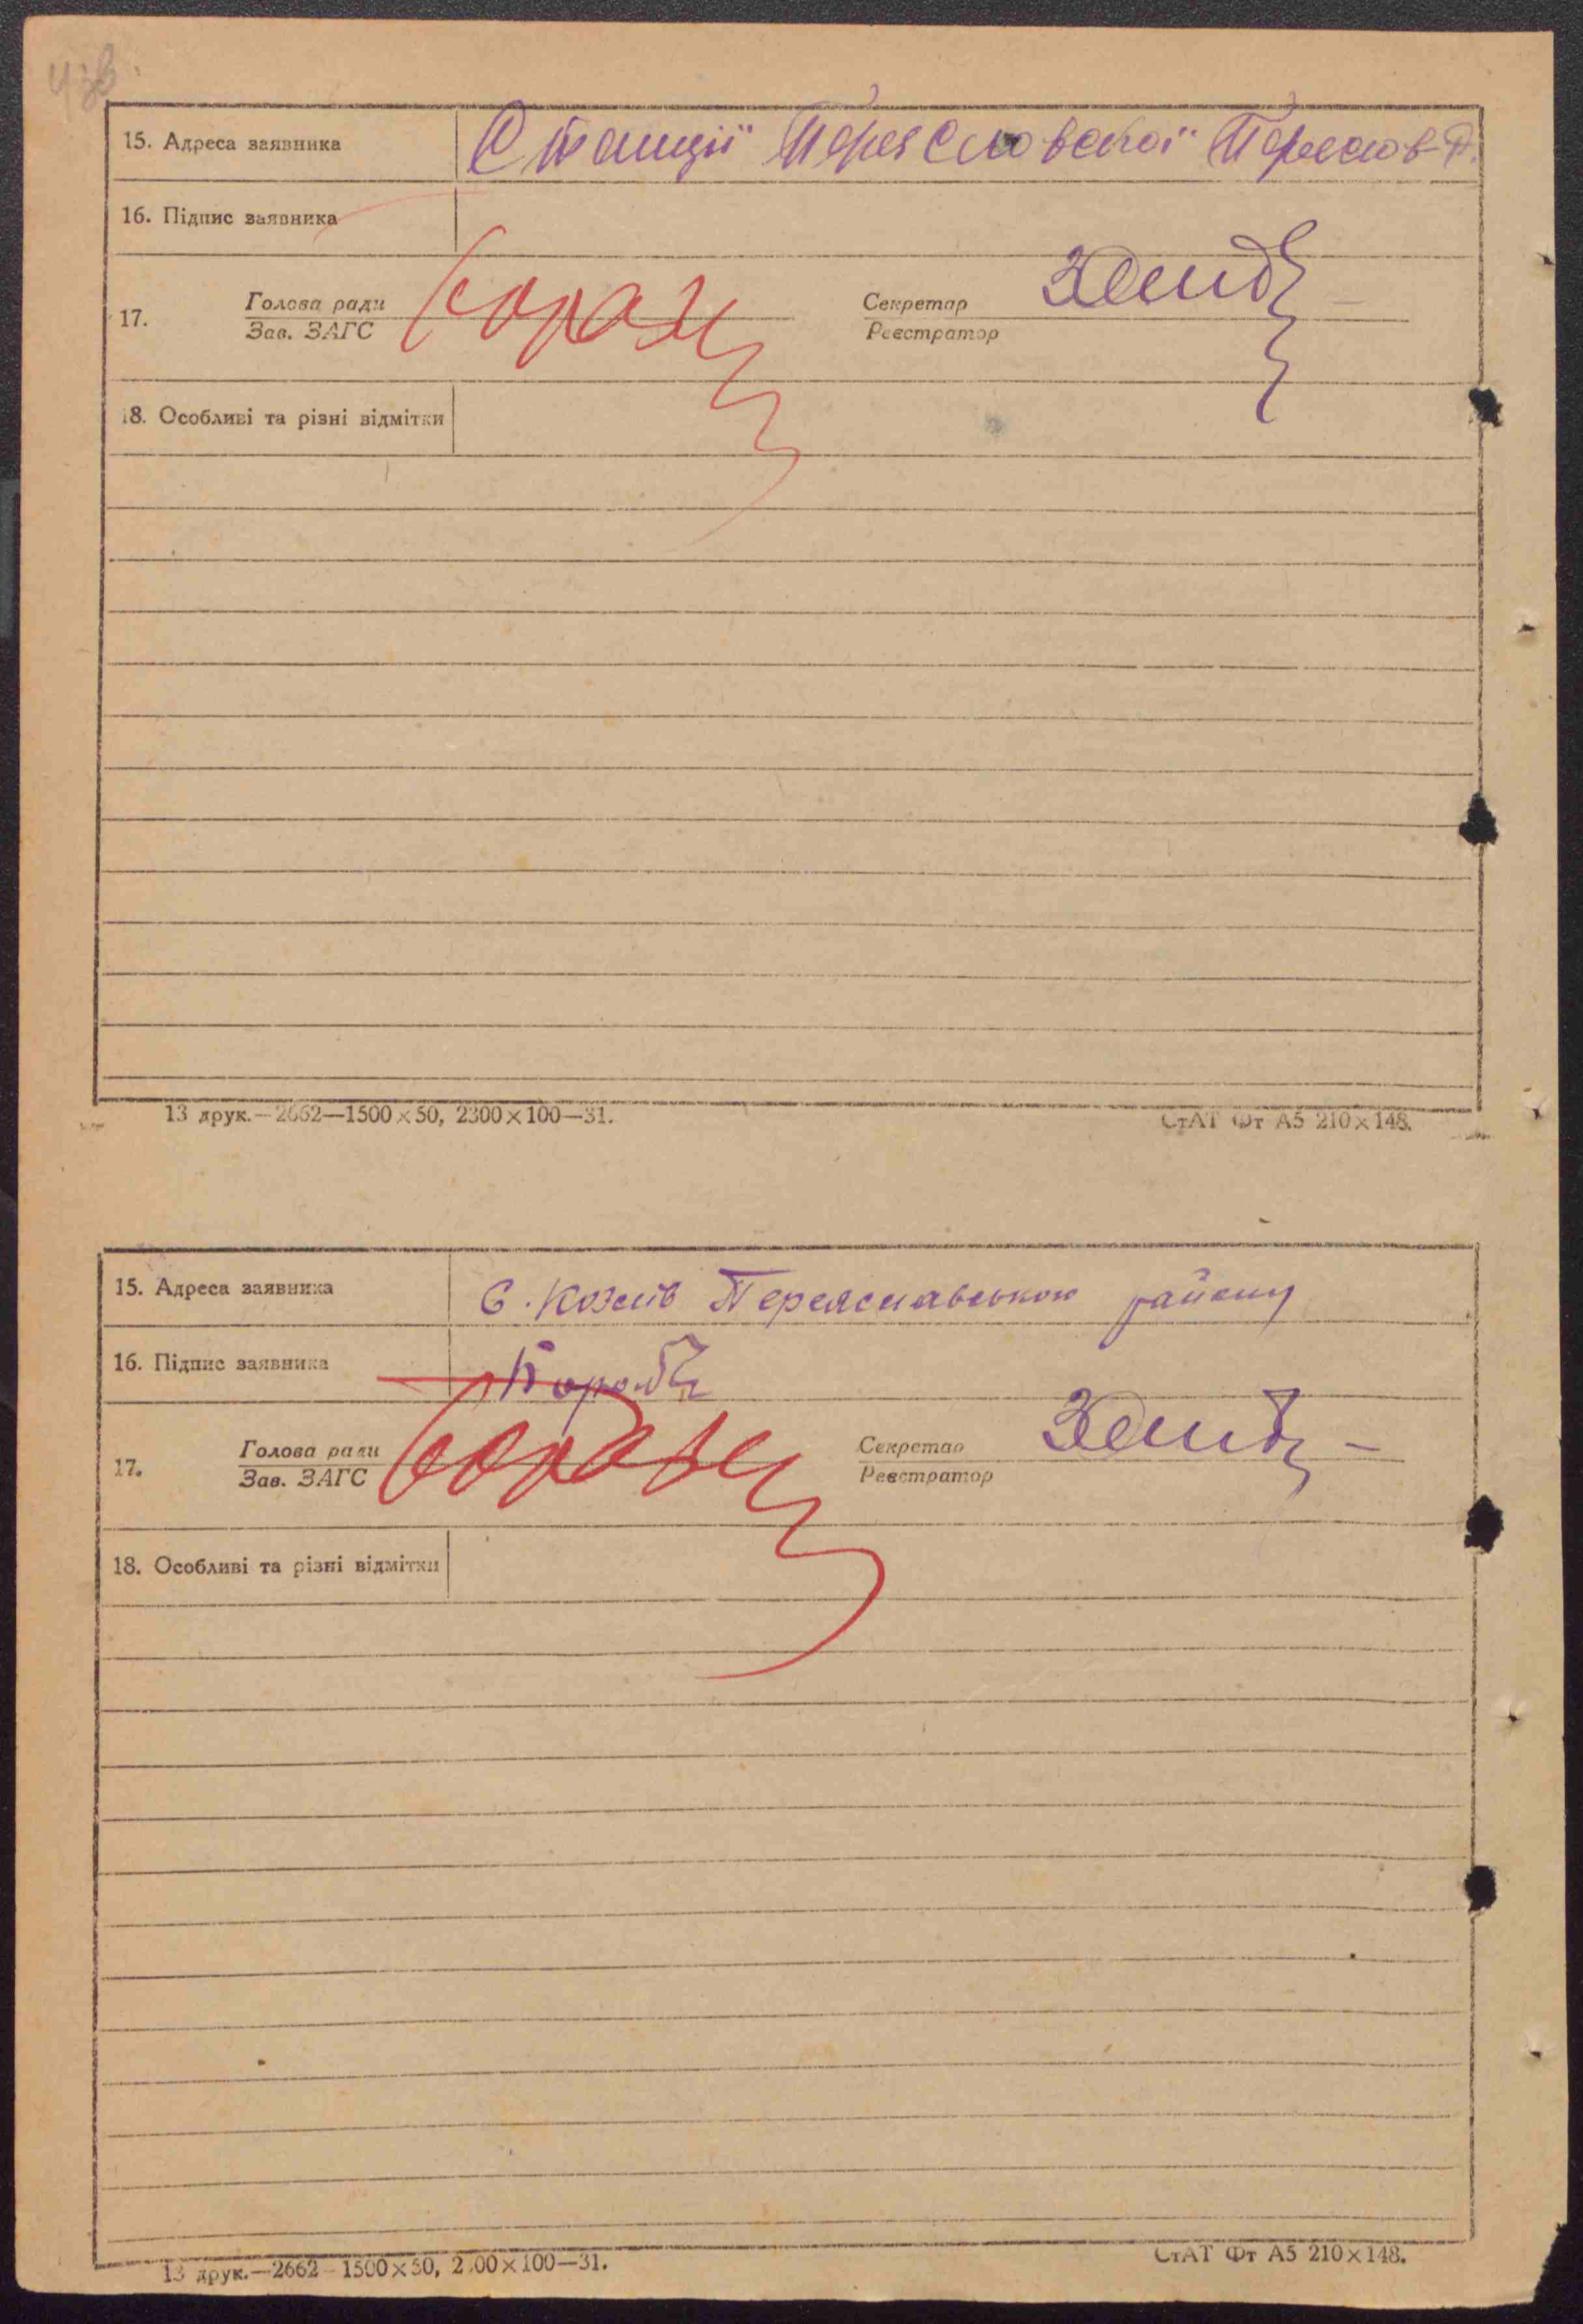 43в.
15. Адреса заявника Станції Переясловської Переяслов Р.
16. Підпис заявника
17. Голова ради Секретар
Зав. ЗАГС Реєстратор
18. Особливі та різні відмітки
13 друк.—2662—1500×50, 2300×100—31. СтАТ Фт А5 210×148.
15. Адреса заявника С. Козлів Переяславського району
16. Підпис заявника
17. Голова ради Секретар
Зав. ЗАГС Реєстратор
18. Особливі та різні відмітки
13 друк.—2662—1500×50, 2300×100—31. СтАТ Фт А5 210×148.